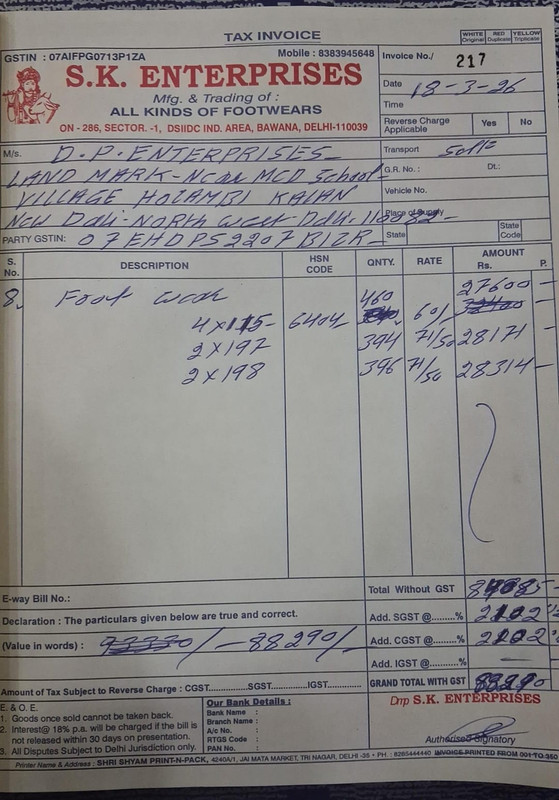 TAX INVOICE
WHITE Original RED Duplicate YELLOW Triplicate
GSTIN : 07AIFPG0713P1ZA Mobile : 8383945648
Invoice No./ 217
S.K. ENTERPRISES
Mfg. & Trading of :
ALL KINDS OF FOOTWEARS
ON - 286, SECTOR. -1, DSIIDC IND. AREA, BAWANA, DELHI-110039
Date 18-3-26
Time
Reverse Charge Applicable Yes No
M/s. D.P. ENTERPRISES
LAND MARK-Near MCD School
VILLAGE HOLAMBI KALAN
New Delhi-North West-Delhi-110082
PARTY GSTIN: 07EHDPS2207B1ZR
Transport Self
G.R. No.: Dt.:
Vehicle No.
Place of Supply
State State Code
S. No. DESCRIPTION HSN CODE QNTY. RATE AMOUNT Rs. P.
8. Foot wear 460 27600 -
4x115- 6404 60/
2x197 394 71/50 28171 -
2x198 396 71/50 28314 -
E-way Bill No.:
Total Without GST 84085 -
Declaration : The particulars given below are true and correct.
Add. SGST @........% 2102
(Value in words) : 88290/-
Add. CGST @........% 2102
Add. IGST @........% -
Amount of Tax Subject to Reverse Charge : CGST..............SGST..............IGST..............
GRAND TOTAL WITH GST 88290
E. & O. E.
1. Goods once sold cannot be taken back.
2. Interest@ 18% p.a. will be charged if the bill is not released within 30 days on presentation.
3. All Disputes Subject to Delhi Jurisdiction only.
Our Bank Details :
Bank Name :
Branch Name :
A/c No. :
RTGS Code :
PAN No. :
S.K. ENTERPRISES
Authorised Signatory
Printer Name & Address : SHRI SHYAM PRINT-N-PACK, 4240A/1, JAI MATA MARKET, TRI NAGAR, DELHI -35 • PH. : 8285444440 INVOICE PRINTED FROM 001 TO 350